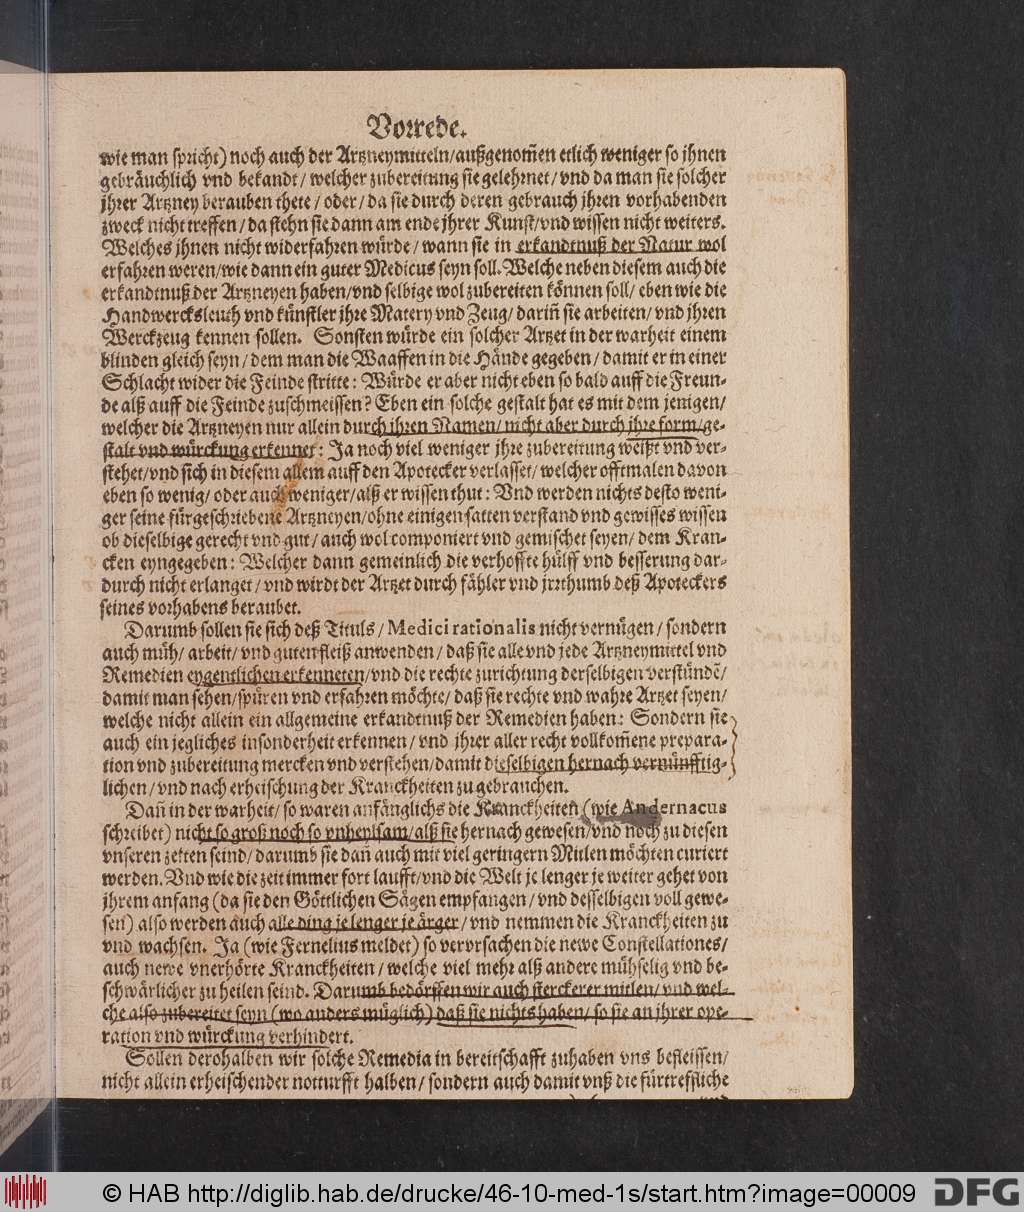 Vorrede.
wie man spricht) noch auch der Artzneymitteln/außgenom̃en etlich weniger so jhnen
gebräuchlich vnd bekandt/ welcher zubereitung sie gelehrnet/ vnd da man sie solcher
jhrer Artzney berauben thete/ oder/ da sie durch deren gebrauch jhren vorhabenden
zweck nicht treffen/ da stehn sie dann am ende jhrer Kunst/vnd wissen nicht weiters.
Welches jhnen nicht widerfahren würde/ wann sie in erkandtnuß der Natur wol
erfahren weren/wie dann ein guter Medicus seyn soll. Welche neben diesem auch die
erkandtnuß der Artzneyen haben/vnd selbige wol zubereiten können soll/ eben wie die
Handwercksleuth vnd künstler jhre Matery vnd Zeug/ dariñ sie arbeiten/ vnd jhren
Werckzeug kennen sollen. Sonsten würde ein solcher Artzet in der warheit einem
blinden gleich seyn/ dem man die Waaffen in die Hände gegeben/ damit er in einer
Schlacht wider die Feinde stritte: Würde er aber nicht eben so bald auff die Freun-
de alß auff die Feinde zuschmeissen? Eben ein solche gestalt hat es mit dem jenigen/
welcher die Artzneyen nur allein durch jhren Namen/ nicht aber durch jhre form/ge-
stalt vnd würckung erkennet: Ja noch viel weniger jhre zubereitung weißt vnd ver-
stehet/vnd sich in diesem allem auff den Apotecker verlasset/ welcher offtmalen davon
eben so wenig/ oder auch weniger/alß er wissen thut: Vnd werden nichts desto weni-
ger seine fürgeschriebene Artzneyen/ohne einigen satten verstand vnd gewisses wissen
ob dieselbige gerecht vnd gut/ auch wol componiert vnd gemischet seyen/ dem Kran-
cken eyngegeben: Welcher dann gemeinlich die verhoffte hülff vnd besserung dar-
durch nicht erlanget/ vnd wirdt der Artzet durch fähler vnd jrrthumb deß Apoteckers
seines vorhabens beraubet.
Darumb sollen sie sich deß Tituls/ Medici rationalis nicht vernügen/ sondern
auch müh/ arbeit/ vnd guten fleiß anwenden/ daß sie alle vnd jede Artzneymittel vnd
Remedien eygentlichen erkenneten/vnd die rechte zurichtung derselbigen verstündẽ/
damit man sehen/spüren vnd erfahren möchte/ daß sie rechte vnd wahre Artzet seyen/
welche nicht allein ein allgemeine erkandtnuß der Remedien haben: Sondern sie
auch ein jegliches insonderheit erkennen/ vnd jhrer aller recht vollkom̃ene prepara-
tion vnd zubereitung mercken vnd verstehen/damit dieselbigen hernach vernünfftig-
lichen/ vnd nach erheischung der Kranckheiten zu gebrauchen.
Dañ in der warheit/ so waren anfänglichs die Kranckheiten (wie Andernacus
schreibet) nicht so groß noch so vnheylsam/alß sie hernach gewesen/vnd noch zu diesen
vnseren zeiten seind/ darumb sie dañ auch mit viel geringern Mitlen möchten curiert
werden. Vnd wie die zeit immer fort laufft/vnd die Welt je lenger je weiter gehet von
jhrem anfang (da sie den Göttlichen Sägen empfangen/ vnd desselbigen voll gewe-
sen) also werden auch alle ding je lenger je ärger/ vnd nemmen die Kranckheiten zu
vnd wachsen. Ja (wie Fernelius meldet) so vervrsachen die newe Constellationes/
auch newe vnerhörte Kranckheiten/ welche viel mehr alß andere mühselig vnd be-
schwärlicher zu heilen seind. Darumb bedörffen wir auch sterckerer mitlen/ vnd wel-
che also zubereitet seyn (wo anders müglich) daß sie nichts haben/ so sie an jhrer ope-
ration vnd würckung verhindert.
Sollen derohalben wir solche Remedia in bereitschafft zuhaben vns befleissen/
nicht allein erheischender notturfft halben/ sondern auch damit vnß die fürtreffliche
© HAB http://diglib.hab.de/drucke/46-10-med-1s/start.htm?image=00009
DFG